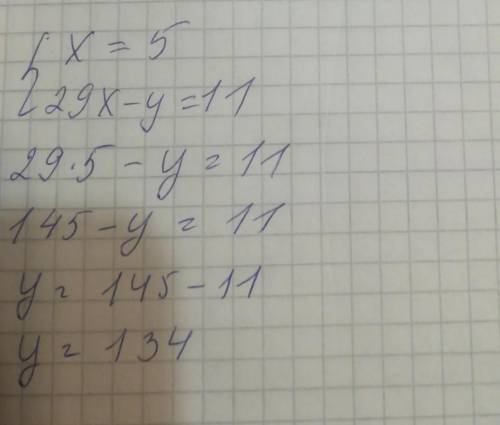 { x = 5
29x - y = 11
29·5 - y = 11
145 - y = 11
y = 145 - 11
y = 134